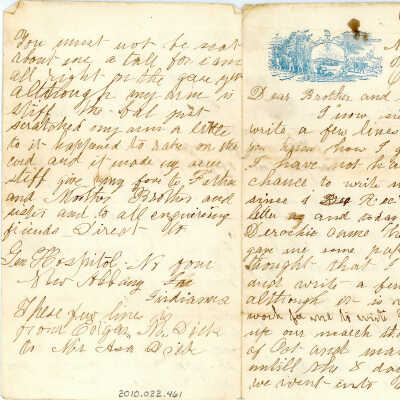 You must not be not
about me a tall for i am
all right on the gane yet
although my arme is
stiff the bal just
scratched my arm a little
to it happened to take on the
cord and it made my arm
stiff give my love to Father
and Mother Brother and
sister and to all enquireing
friends Direct to
Gen Hospital No four
New Albany
Indianna
These few lines is
from Edgar A. Dick
to Mr Asa Dick
2010.022.461
Dear Brother and
I now
write a few lines
you know how I
I have not
chance to write
since I Rec
letter and today
Derochie came
gave me some
thought that I
write a few
although it is
work for me to write
up our march
of Oct and
untill the 8 day
we went into